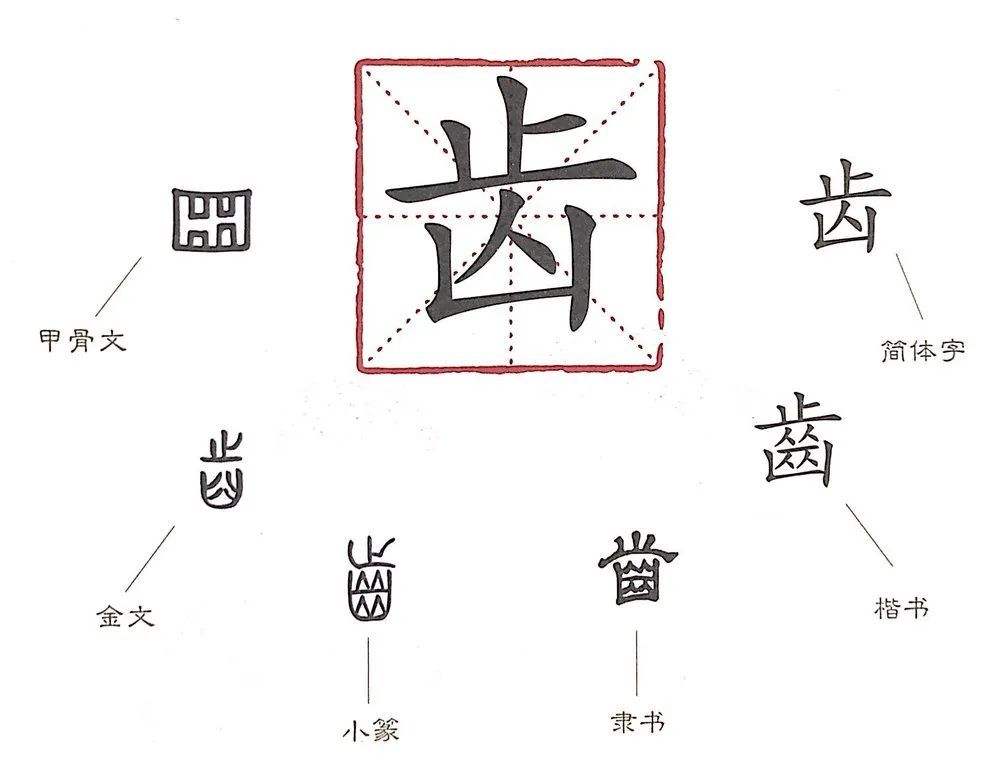 齿
齿
甲骨文
简体字
齒
金文
楷书
小篆
隶书